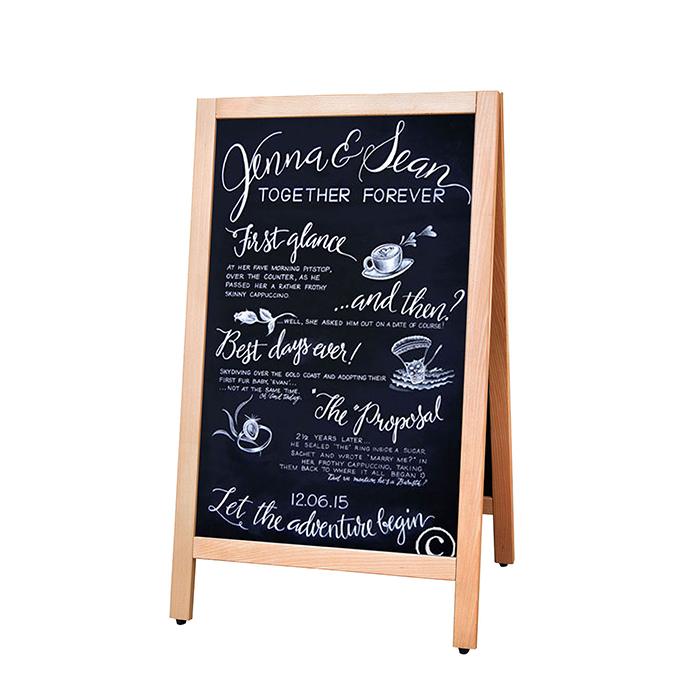 Jenna & Sean
TOGETHER FOREVER
First glance
AT HER FAVE MORNING PITSTOP,
OVER THE COUNTER, AS HE
PASSED HER A RATHER FROTHY
SKINNY CAPPUCCINO.
...and then?
...WELL, SHE ASKED HIM OUT ON A DATE OF COURSE!
Best days ever!
SKYDIVING OVER THE GOLD COAST AND ADOPTING THEIR
FIRST FUR BABY, 'EVAN'...
...NOT AT THE SAME TIME.
Oh And today.
"The" Proposal
2½ YEARS LATER...
HE SEALED "THE" RING INSIDE A SUGAR
SACHET AND WROTE "MARRY ME?" IN
HER FROTHY CAPPUCCINO, TAKING
THEM BACK TO WHERE IT ALL BEGAN :)
Did we mention he's a Barista?
12.06.15
Let the adventure begin
©